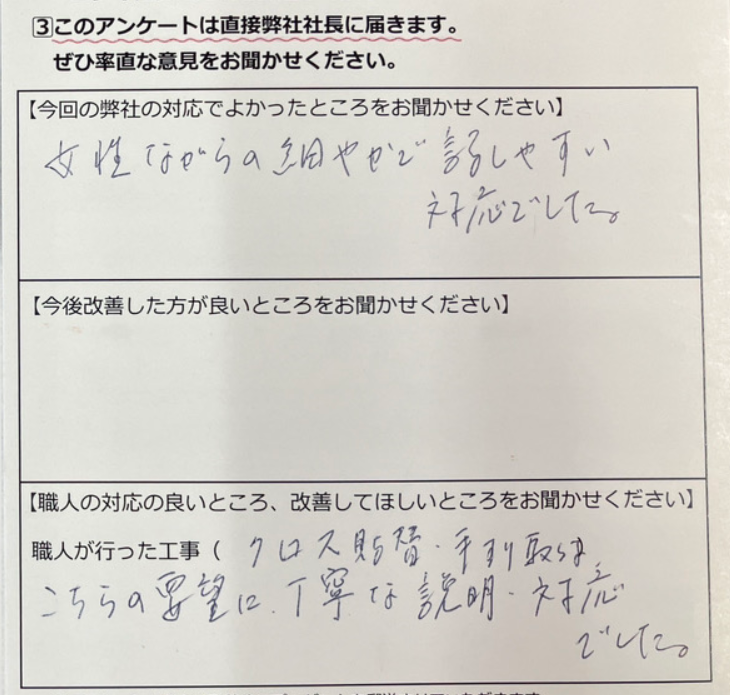 ③このアンケートは直接弊社社長に届きます。
ぜひ率直な意見をお聞かせください。
【今回の弊社の対応でよかったところをお聞かせください】
女性ながらの細やかで話しやすい
対応でした。
【今後改善した方が良いところをお聞かせください】
【職人の対応の良いところ、改善してほしいところをお聞かせください】
職人が行った工事（ クロス貼替・手すり取付
こちらの要望に、丁寧な説明・対応
でした。